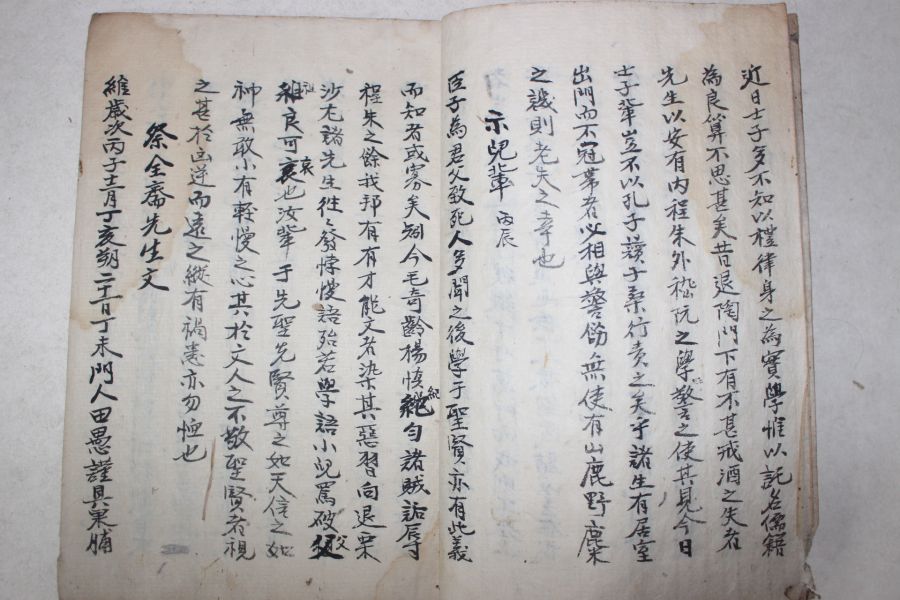 近日士子多不知以禮律身之為實學惟以託名儒籍
為良算不思甚矣昔退陶門下有不甚戒酒之失者
先生以安有內程朱外嵇阮之學警之使其見今日
士子輩豈不以孔子顙子桑行責之矣乎諸生有居室
出門而不冠帶者必相與警飭無使有山鹿野麋
之譏則老夫之幸也
示兒輩 丙辰
臣子為君父致死人多聞之後學于聖賢亦有此義
而知者或寡矣如今毛奇齡楊慎紀勻諸賊詬辱
程朱之餘我邦有有才能文者染其惡習向退栗
沙尤諸先生往〻發悖慢語殆若學語小兒罵破父
祖良可哀也汝輩于先聖先賢尊之如天信之如
神無敢小有輕慢之心其於文人之不敬聖賢者視
之甚於凶逆而遠之縱有禍患亦勿恤也
祭全齋先生文
維歲次丙子十二月丁亥朔二十一日丁未門人田愚謹具果脯